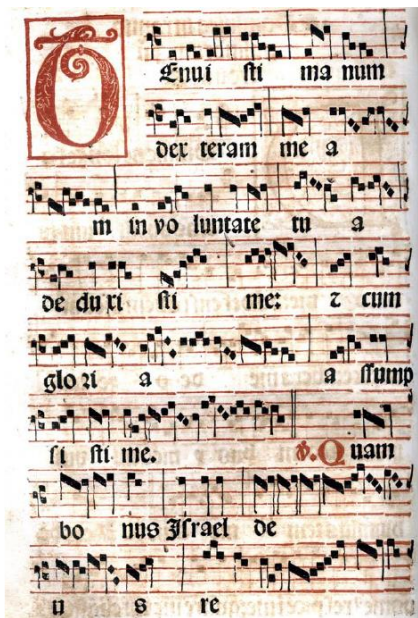 TEnui sti ma num
dex teram me a
m in vo luntate tu a
de du xi sti me: ⁊ cum
glo ri a a ssump
si sti me. ℣. Quam
bo nus Israel de
u s re